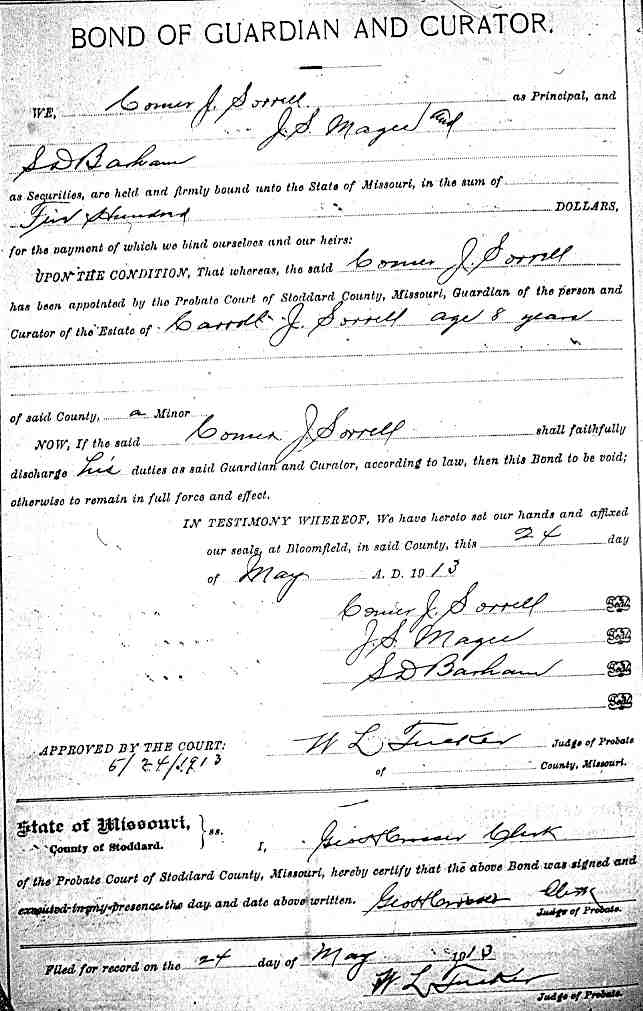 BOND OF GUARDIAN AND CURATOR.
WE, Comer J. Sorrell as Principal, and
J. S. Magee and
S D Barham
as Securities, are held and firmly bound unto the State of Missouri, in the sum of
Five Hundred DOLLARS,
for the payment of which we bind ourselves and our heirs:
UPON THE CONDITION, That whereas, the said Comer J. Sorrell
has been appointed by the Probate Court of Stoddard County, Missouri, Guardian of the person and
Curator of the Estate of Carroll J. Sorrell age 8 years
of said County, a Minor
NOW, If the said Comer J Sorrell shall faithfully
discharge his duties as said Guardian and Curator, according to law, then this Bond to be void;
otherwise to remain in full force and effect.
IN TESTIMONY WHEREOF, We have hereto set our hands and affixed
our seals, at Bloomfield, in said County, this 24 day
of May A. D. 1913
Comer J. Sorrell Seal
J. S. Magee Seal
S D Barham Seal
Seal
APPROVED BY THE COURT: W L Tucker Judge of Probate
5/24/1913 of County, Missouri.
State of Missouri, } ss.
County of Stoddard. I, Geo H Clerk
of the Probate Court of Stoddard County, Missouri, hereby certify that the above Bond was signed and
executed in my presence the day and date above written. Geo H Clerk
Judge of Probate.
Filed for record on the 24 day of May 1913
W L Tucker
Judge of Probate.